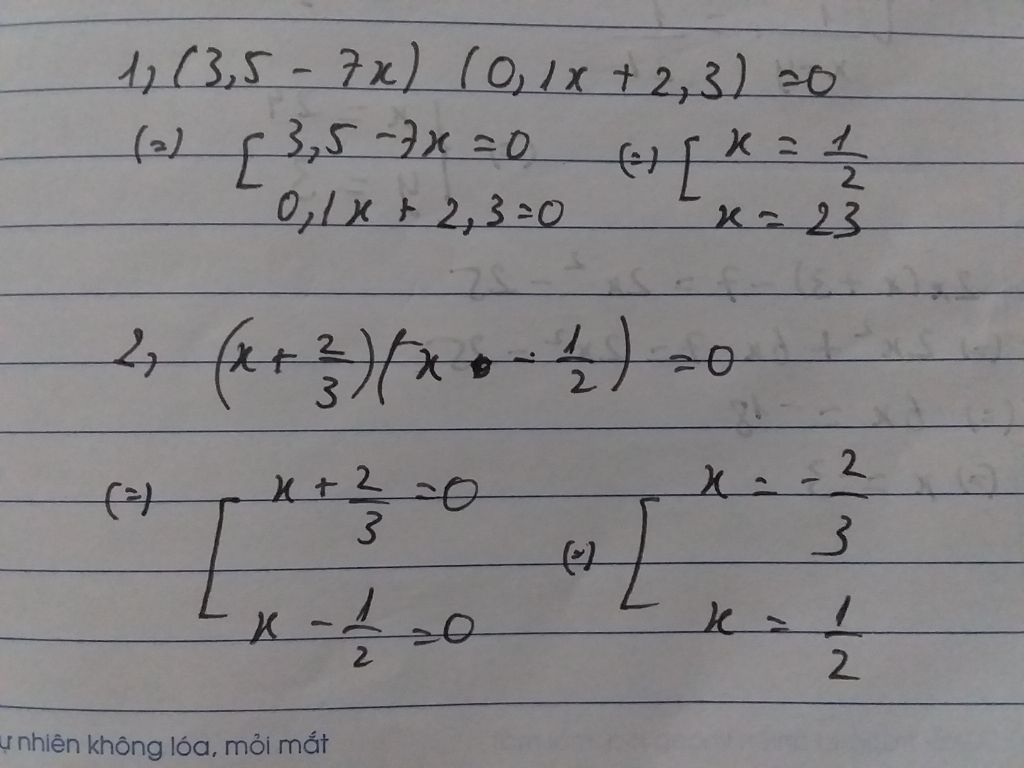 1, (3,5 - 7x) (0,1x + 2,3) = 0
(=) [ 3,5 - 7x = 0 (=) [ x = 1/2
0,1x + 2,3 = 0 x = 23
2, (x + 2/3)(x - 1/2) = 0
(=) [ x + 2/3 = 0 (=) [ x = -2/3
x - 1/2 = 0 x = 1/2
ự nhiên không lóa, mỏi mắt